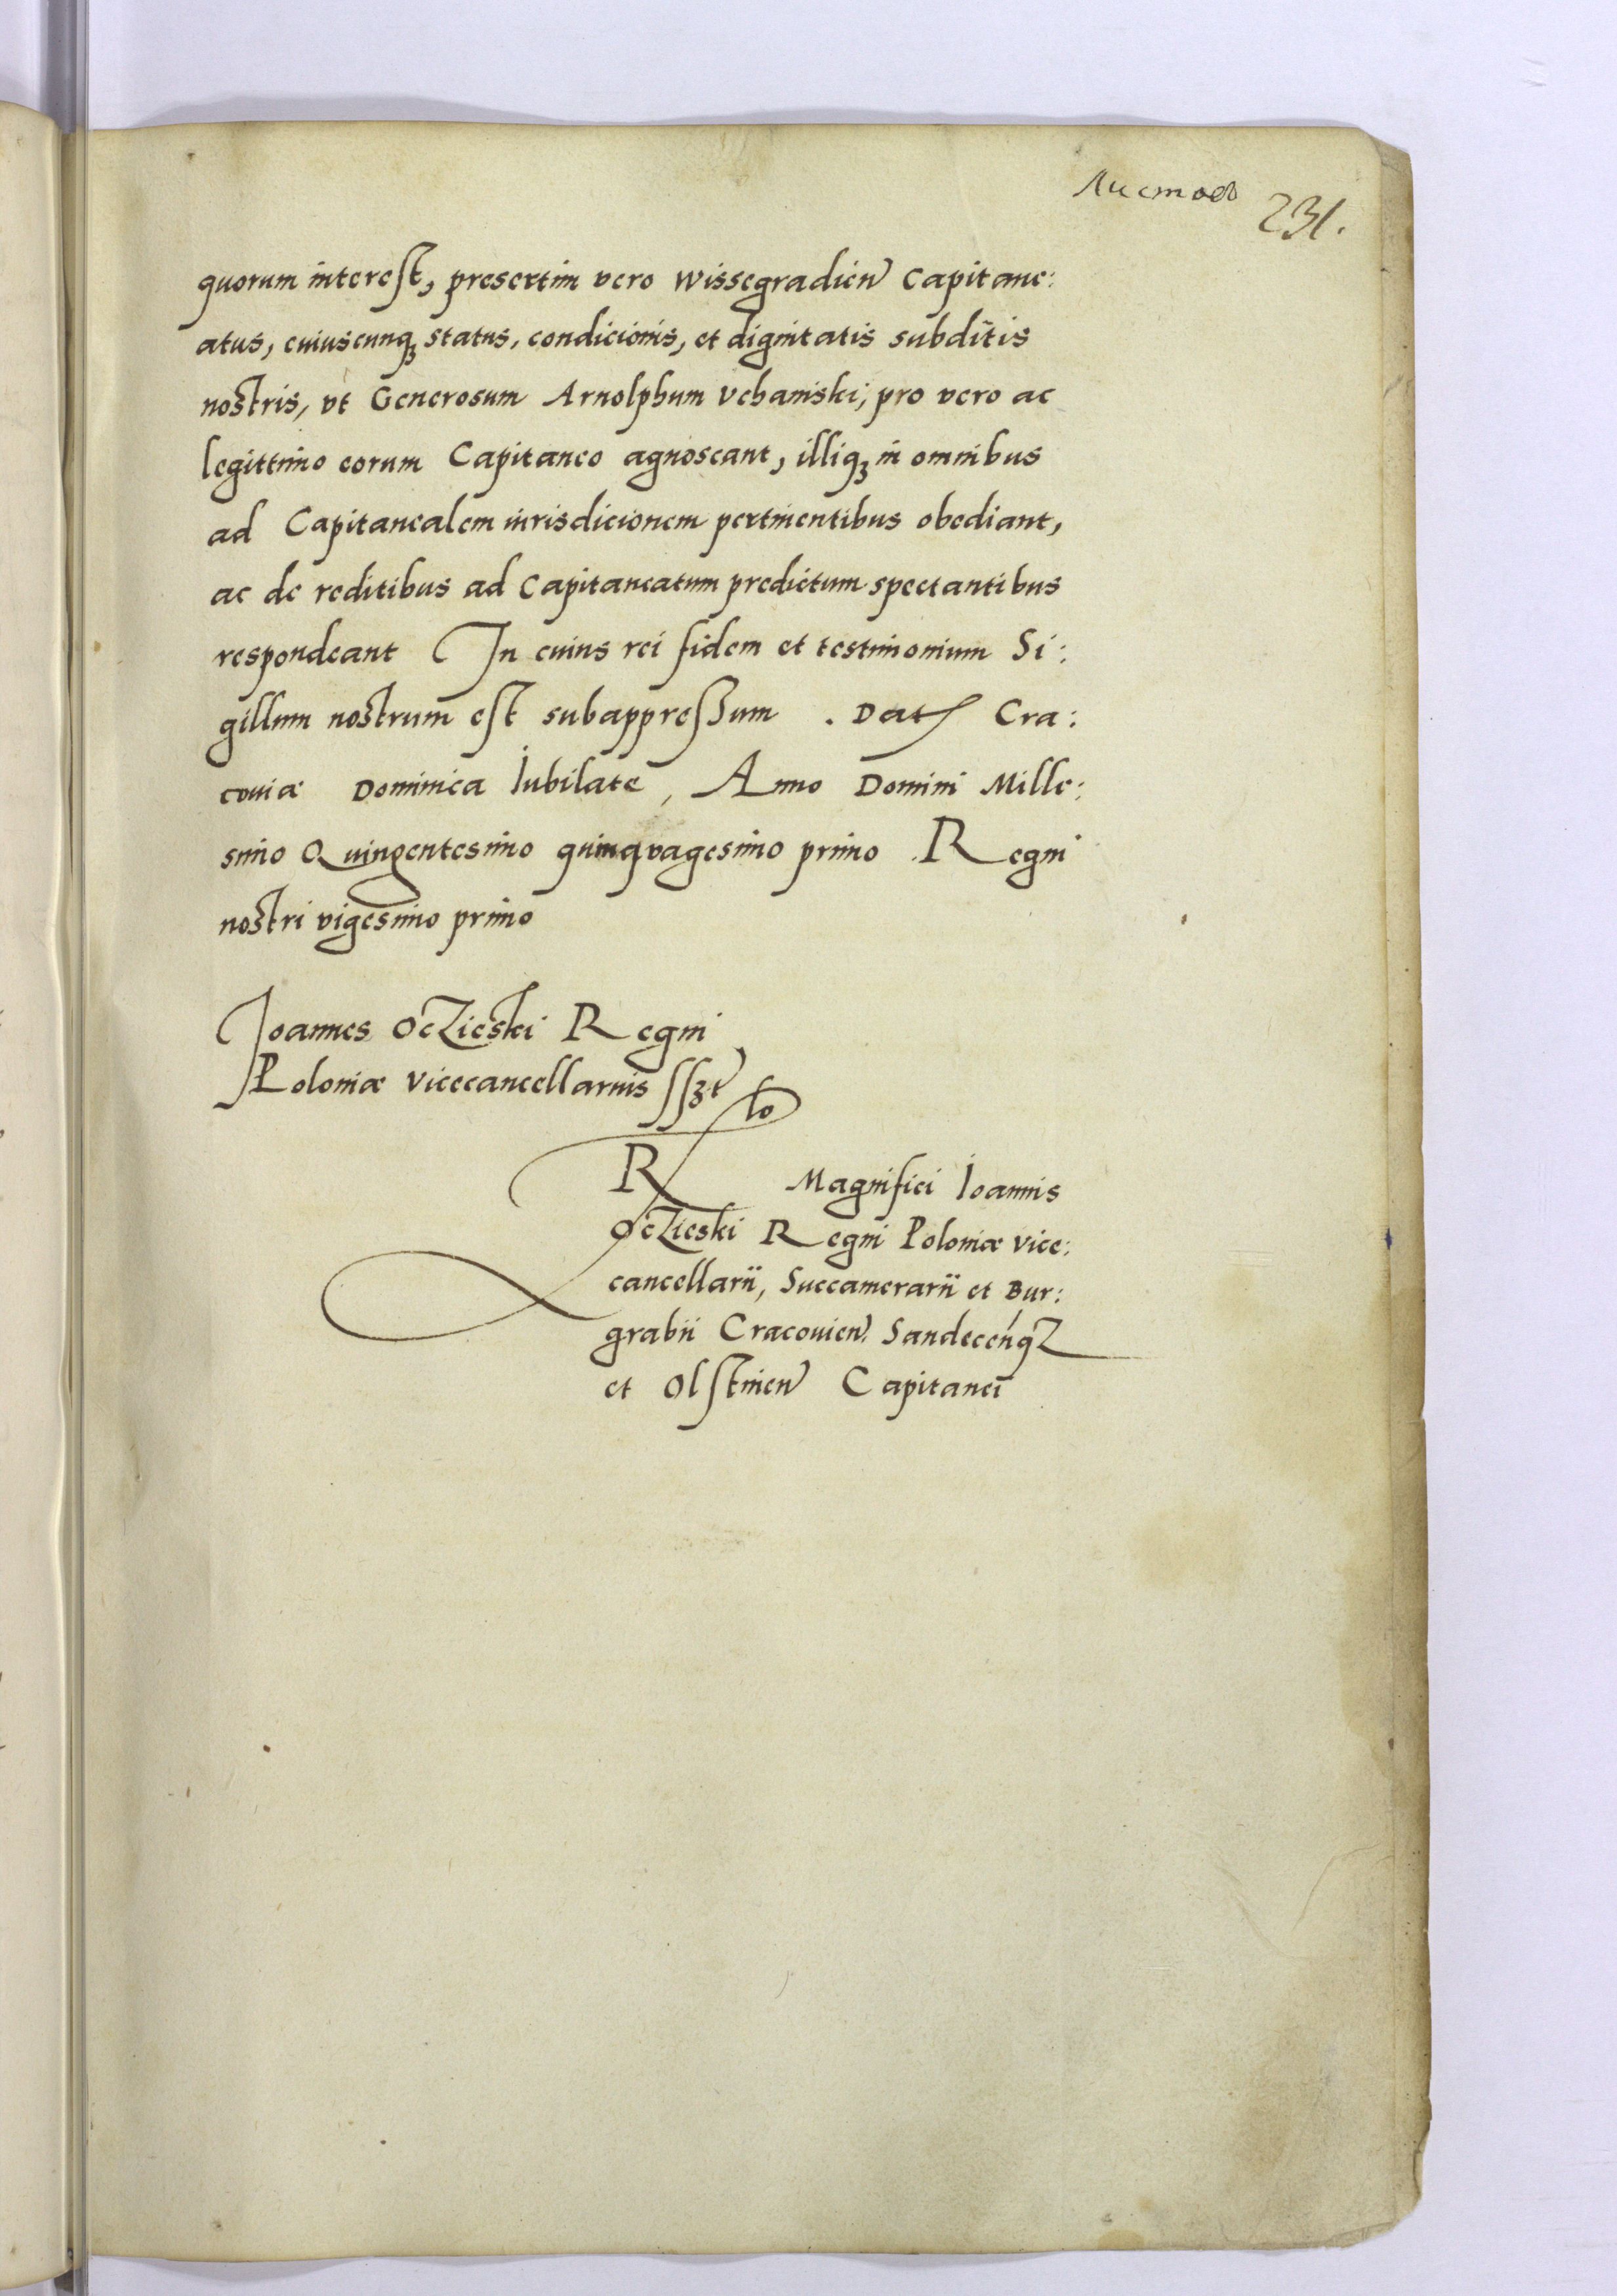 Листовъ 231.
quorum interest, presertim vero Wissegradien Capitane:
atus, cuiuscunqꝫ status, condicionis, et dignitatis subditis
nostris, vt Generosum Arnolphum Vchanski, pro vero ac
legittimo eorum Capitaneo agnoscant, illiqꝫ in omnibus
ad Capitanealem iurisdicionem pertinentibus obediant,
ac de reditibus ad Capitaneatum predictum spectantibus
respondeant In cuius rei fidem et testimonium Si:
gillum nostrum est subappressum . Dat Cra:
couiæ Dominica Iubilate, Anno Domini Mille:
simo Quingentesimo quinquagesimo primo Regni
nostri vigesimo primo
Joannes Oczieski Regni
Poloniæ Vicecancellarius sszt
R̃lo Magnifici Ioannis
Oczieski Regni Poloniæ vice:
cancellarii, Succamerarii et Bur:
grabii Cracouien. Sandecenqz
et Olstinen Capitanei